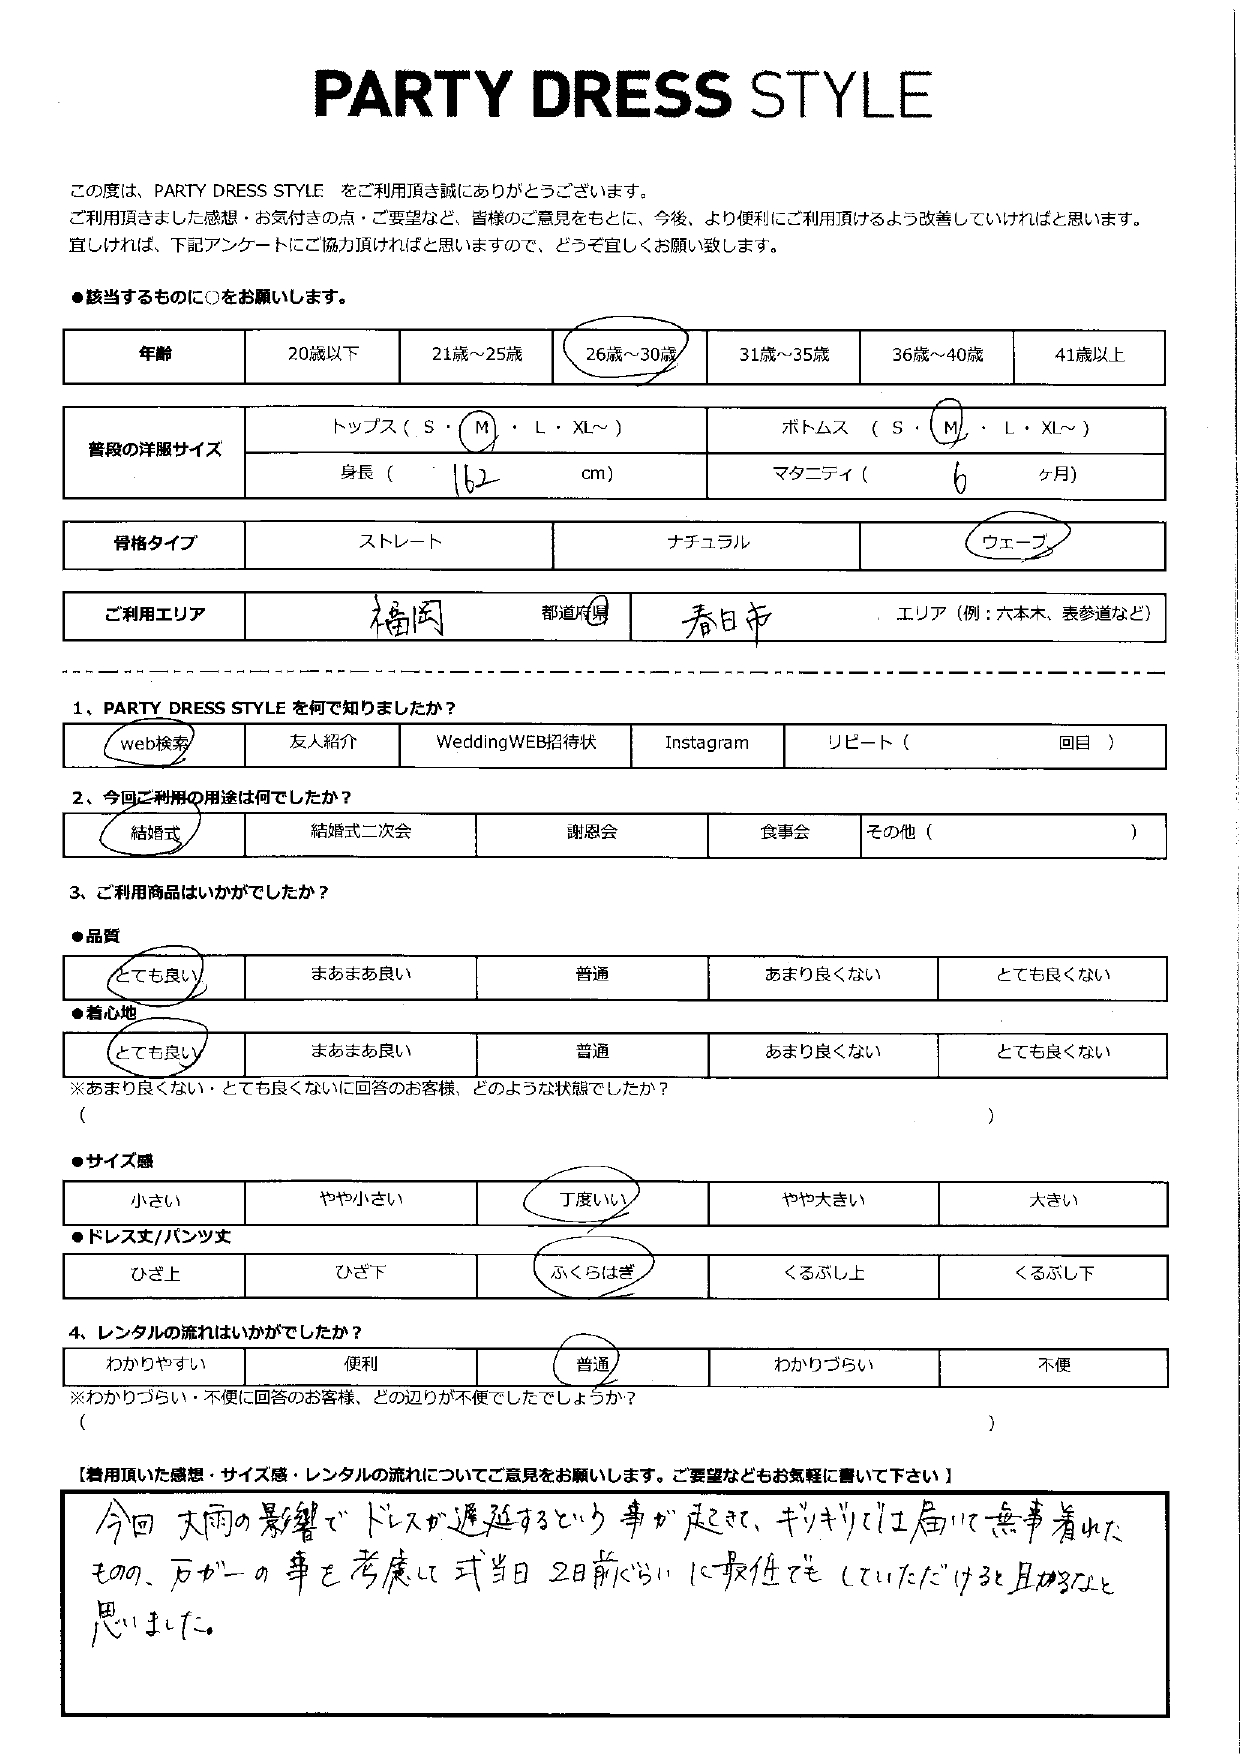 PARTY DRESS STYLE
この度は、PARTY DRESS STYLE をご利用頂き誠にありがとうございます。
ご利用頂きました感想・お気付きの点・ご要望など、皆様のご意見をもとに、今後、より便利にご利用頂けるよう改善していければと思います。
宜しければ、下記アンケートにご協力頂ければと思いますので、どうぞ宜しくお願い致します。
●該当するものに○をお願いします。
年齢 20歳以下 21歳～25歳 26歳～30歳 31歳～35歳 36歳～40歳 41歳以上
普段の洋服サイズ トップス ( S ・ M ・ L ・ XL～ ) ボトムス ( S ・ M ・ L ・ XL～ )
身長 ( 162 cm) マタニティ ( 6 ヶ月)
骨格タイプ ストレート ナチュラル ウェーブ
ご利用エリア 福岡 都道府県 春日市 エリア（例：六本木、表参道など）
1、PARTY DRESS STYLE を何で知りましたか？
web検索 友人紹介 WeddingWEB招待状 Instagram リピート ( 回目 )
2、今回ご利用の用途は何でしたか？
結婚式 結婚式二次会 謝恩会 食事会 その他 ( )
3、ご利用商品はいかがでしたか？
●品質
とても良い まあまあ良い 普通 あまり良くない とても良くない
●着心地
とても良い まあまあ良い 普通 あまり良くない とても良くない
※あまり良くない・とても良くないに回答のお客様、どのような状態でしたか？
( )
●サイズ感
小さい やや小さい 丁度いい やや大きい 大きい
●ドレス丈/パンツ丈
ひざ上 ひざ下 ふくらはぎ くるぶし上 くるぶし下
4、レンタルの流れはいかがでしたか？
わかりやすい 便利 普通 わかりづらい 不便
※わかりづらい・不便に回答のお客様、どの辺りが不便でしたでしょうか？
( )
【着用頂いた感想・サイズ感・レンタルの流れについてご意見をお願いします。ご要望などもお気軽に書いて下さい 】
今回 大雨の影響で ドレスが遅延するという 事が 起きて、ギリギリでは届いて無事着れた
ものの、万が一の 事を 考慮して 式当日 2日前ぐらい に最低でも していただけると助かるなと
思いました。